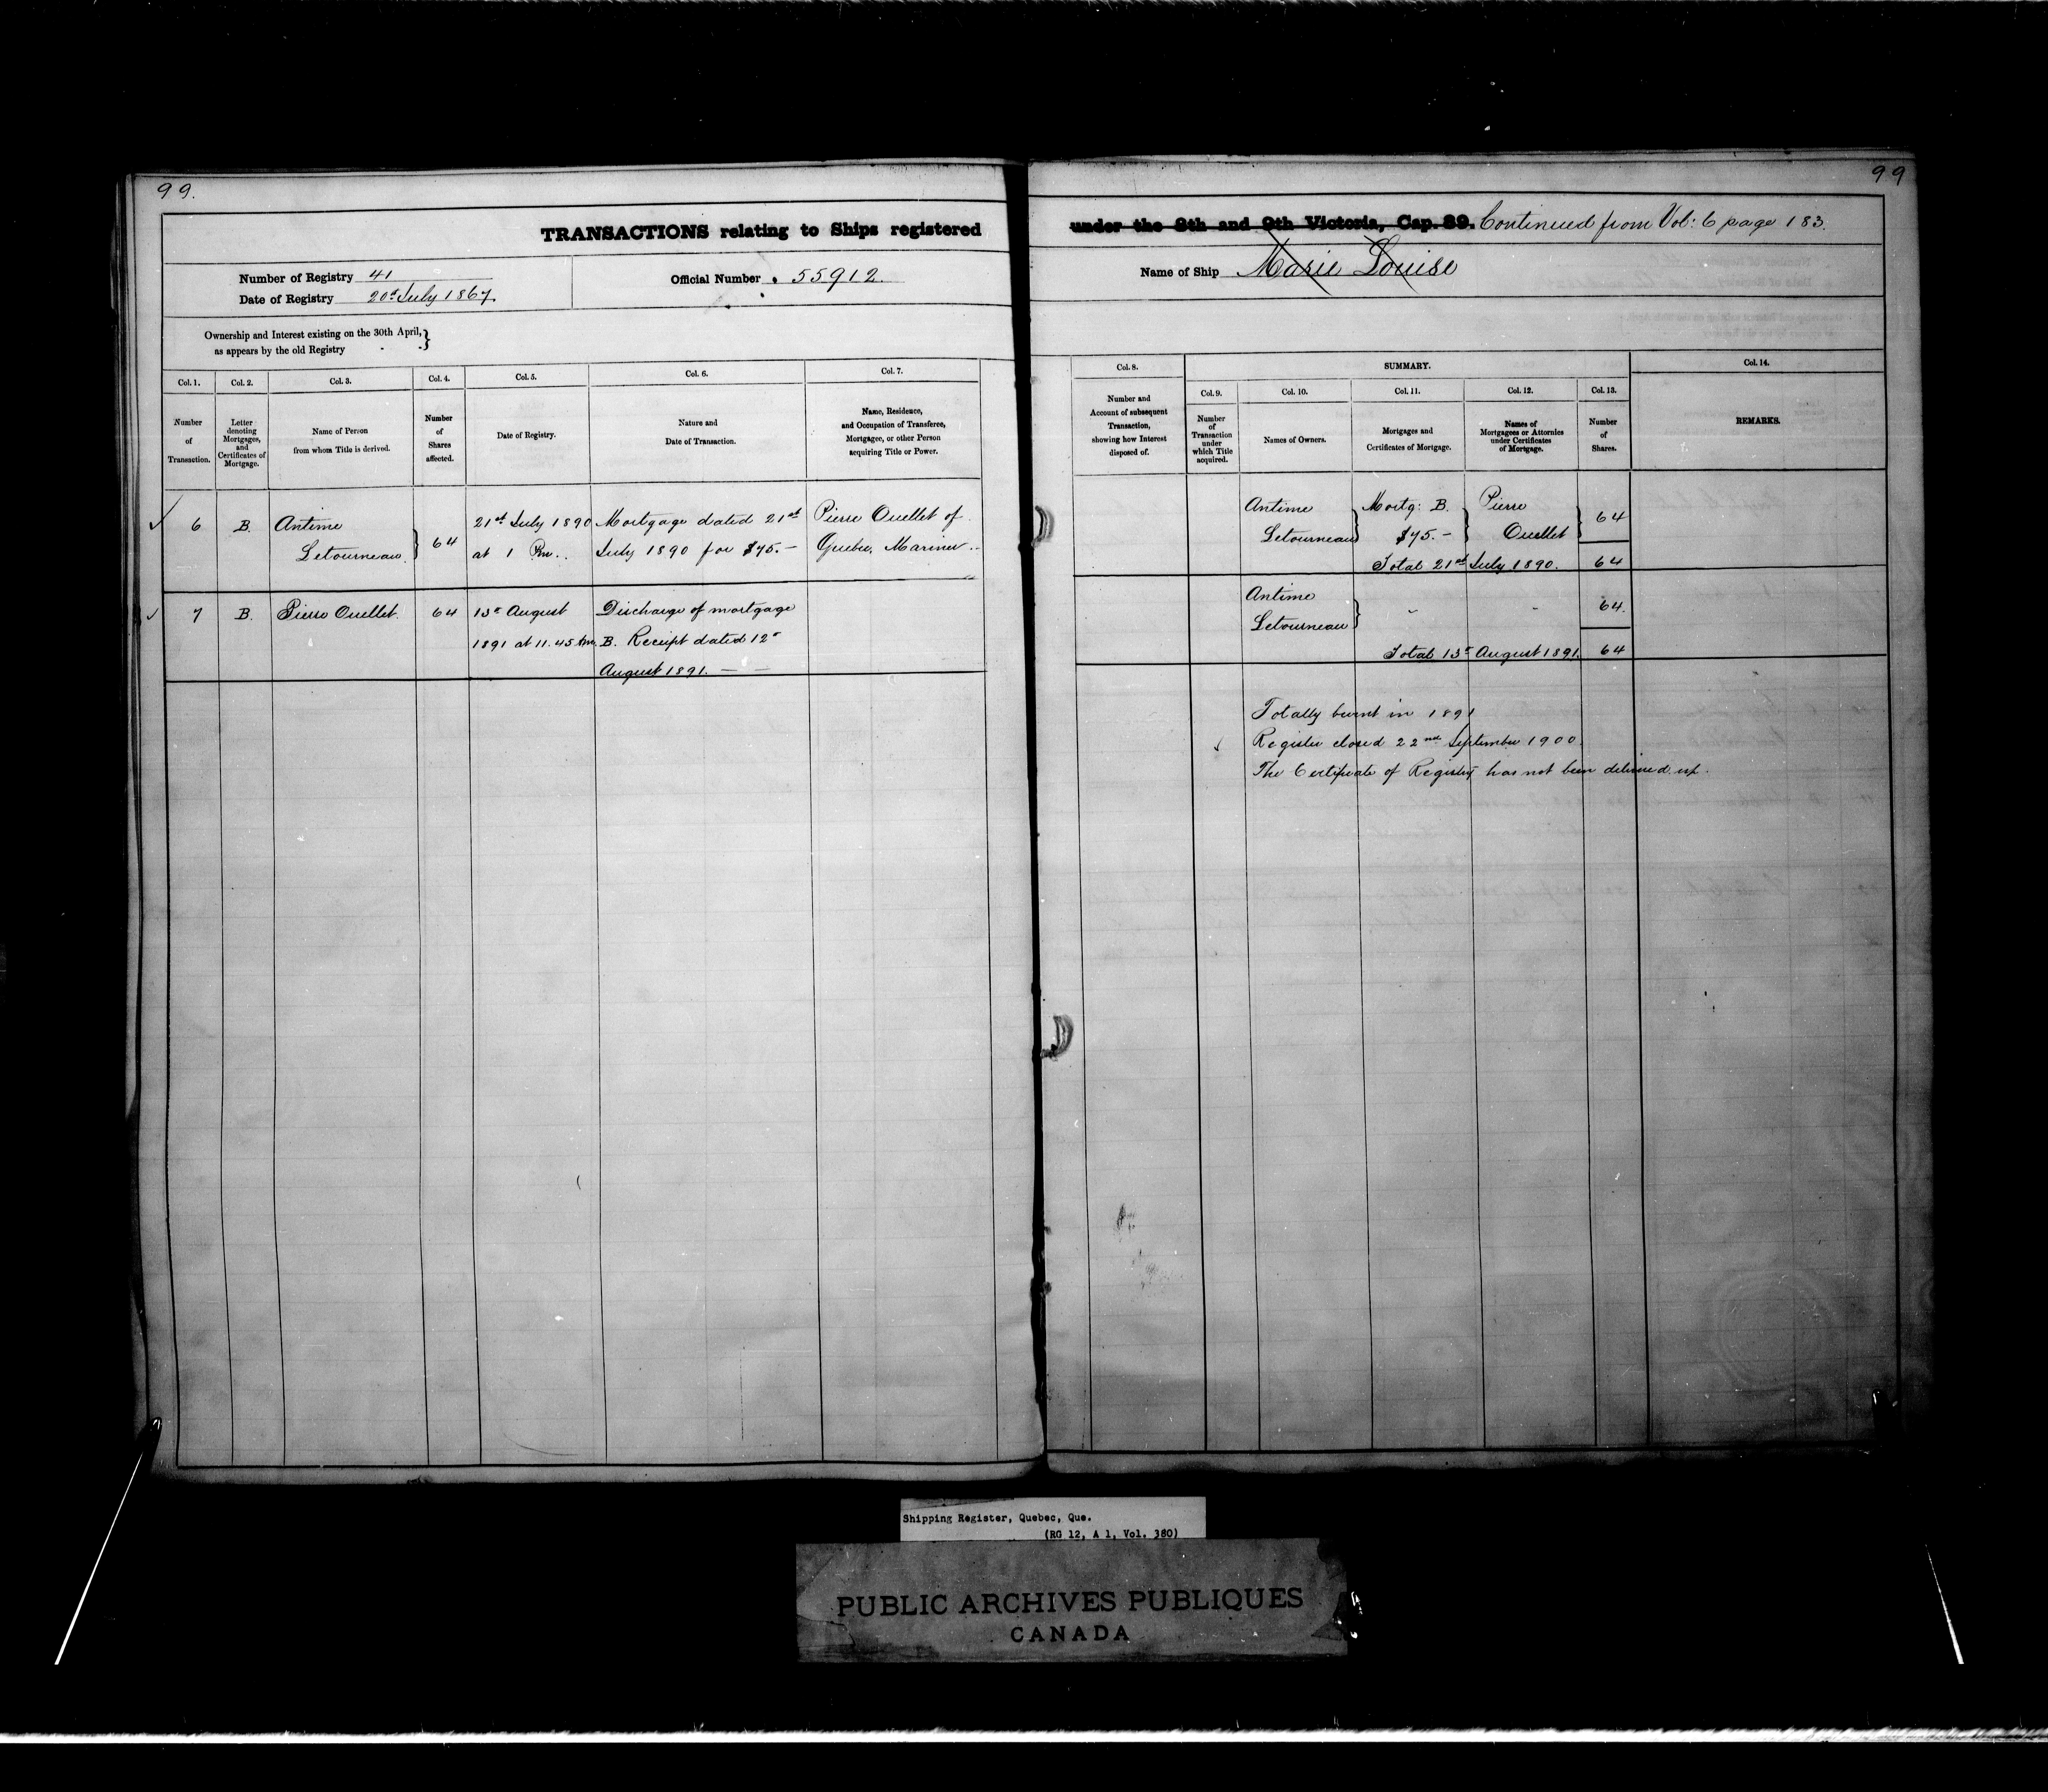 99.
TRANSACTIONS relating to Ships registered
Number of Registry 41
Date of Registry 20th July 1867.
Official Number 55912.
Ownership and Interest existing on the 30th April,
as appears by the old Registry }
Col. 1. Col. 2. Col. 3. Col. 4. Col. 5. Col. 6. Col. 7.
Number of Transaction.
Letter denoting Mortgages, and Certificates of Mortgage.
Name of Person from whom Title is derived.
Number of Shares affected.
Date of Registry.
Nature and Date of Transaction.
Name, Residence, and Occupation of Transferee, Mortgagee, or other Person acquiring Title or Power.
6 B. Antime 21st July 1890 Mortgage dated 21st Pierre Ouellet of
Letourneau. } 64 at 1 Pm.. July 1890 for $75.— Quebec, Mariner..
7 B. Pierre Ouellet. 64 13th August Discharge of mortgage
1891 at 11.45 Am. B. Receipt dated 12th
August 1891. — —
99
under the 8th and 9th Victoria, Cap. 89. Continued from Vol: 6 page 183.
Name of Ship Marie Louise
Col. 8. SUMMARY. Col. 14.
Col. 9. Col. 10. Col. 11. Col. 12. Col. 13.
Number and Account of subsequent Transaction, showing how Interest disposed of.
Number of Transaction under which Title acquired.
Names of Owners.
Mortgages and Certificates of Mortgage.
Names of Mortgagees or Attornies under Certificates of Mortgage.
Number of Shares.
REMARKS.
Antime Mortg: B. Pierre 64
Letourneau } $75.— } Ouellet }
Total 21st July 1890. 64
Antime 64.
Letourneau } " "
Total 13th August 1891. 64
Totally burnt in 1891
Register closed 22nd September 1900.
The Certificate of Registry has not been delivered up.
Shipping Register, Quebec, Que.
(RG 12, A 1, Vol. 380)
PUBLIC ARCHIVES PUBLIQUES
CANADA